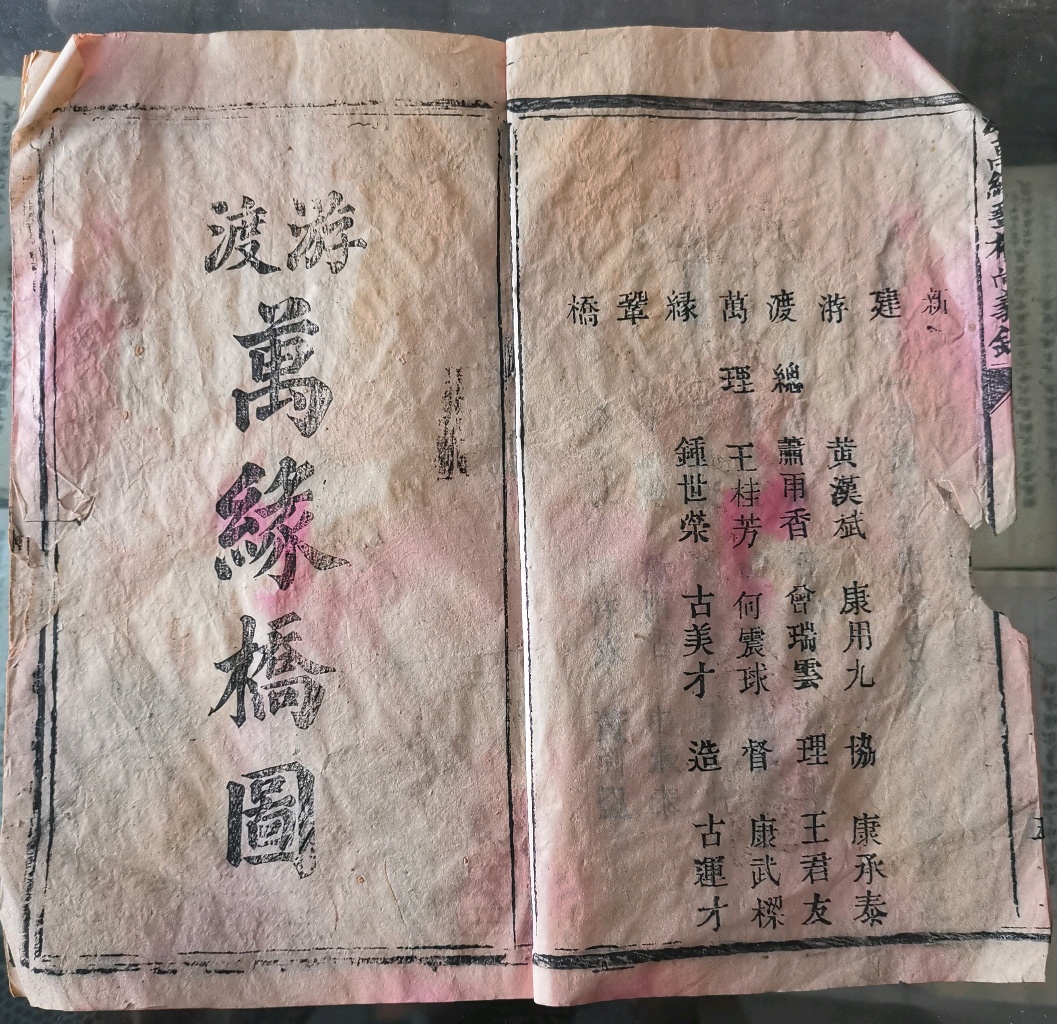 萬緣鞏橋尚義錄
新建游渡萬縁鞏橋
總理
黃漢斌 康用九
蕭雨香 曾瑞雲
王桂芳 何震球
鍾世榮 古美才
協理督造
康承泰
王君友
康武樑
古運才
游渡
萬緣橋圖